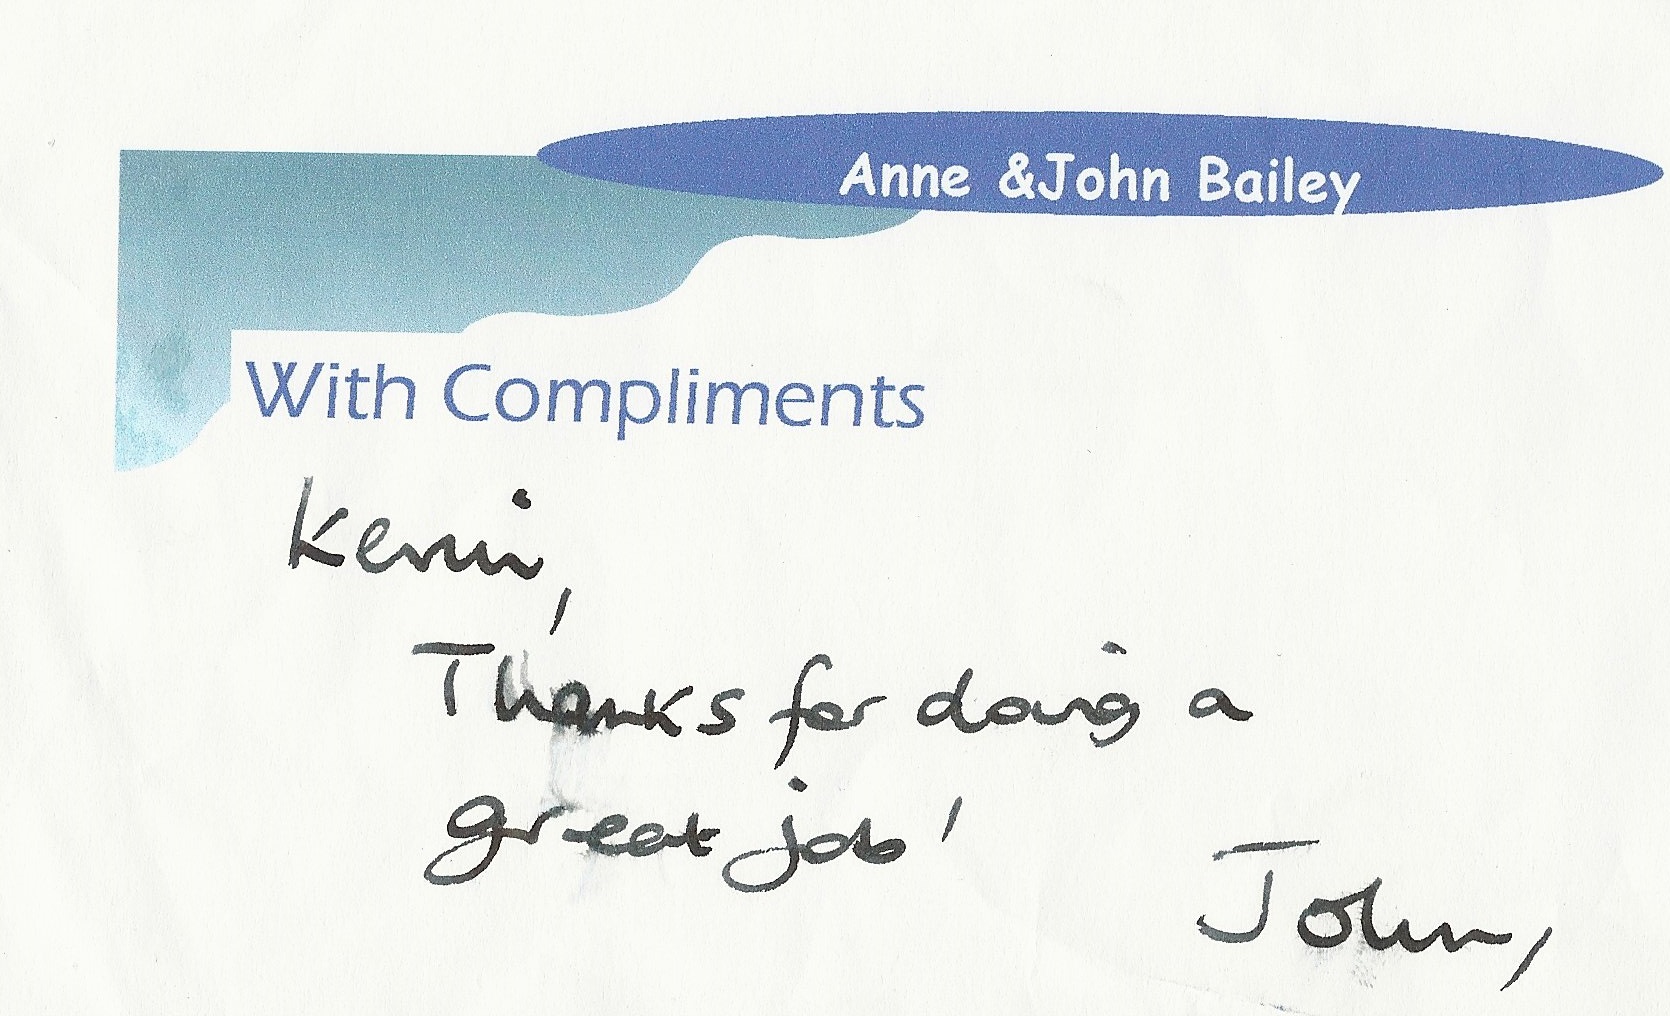 Anne &John Bailey
With Compliments
Kevin,
Thanks for doing a
great job!
John,